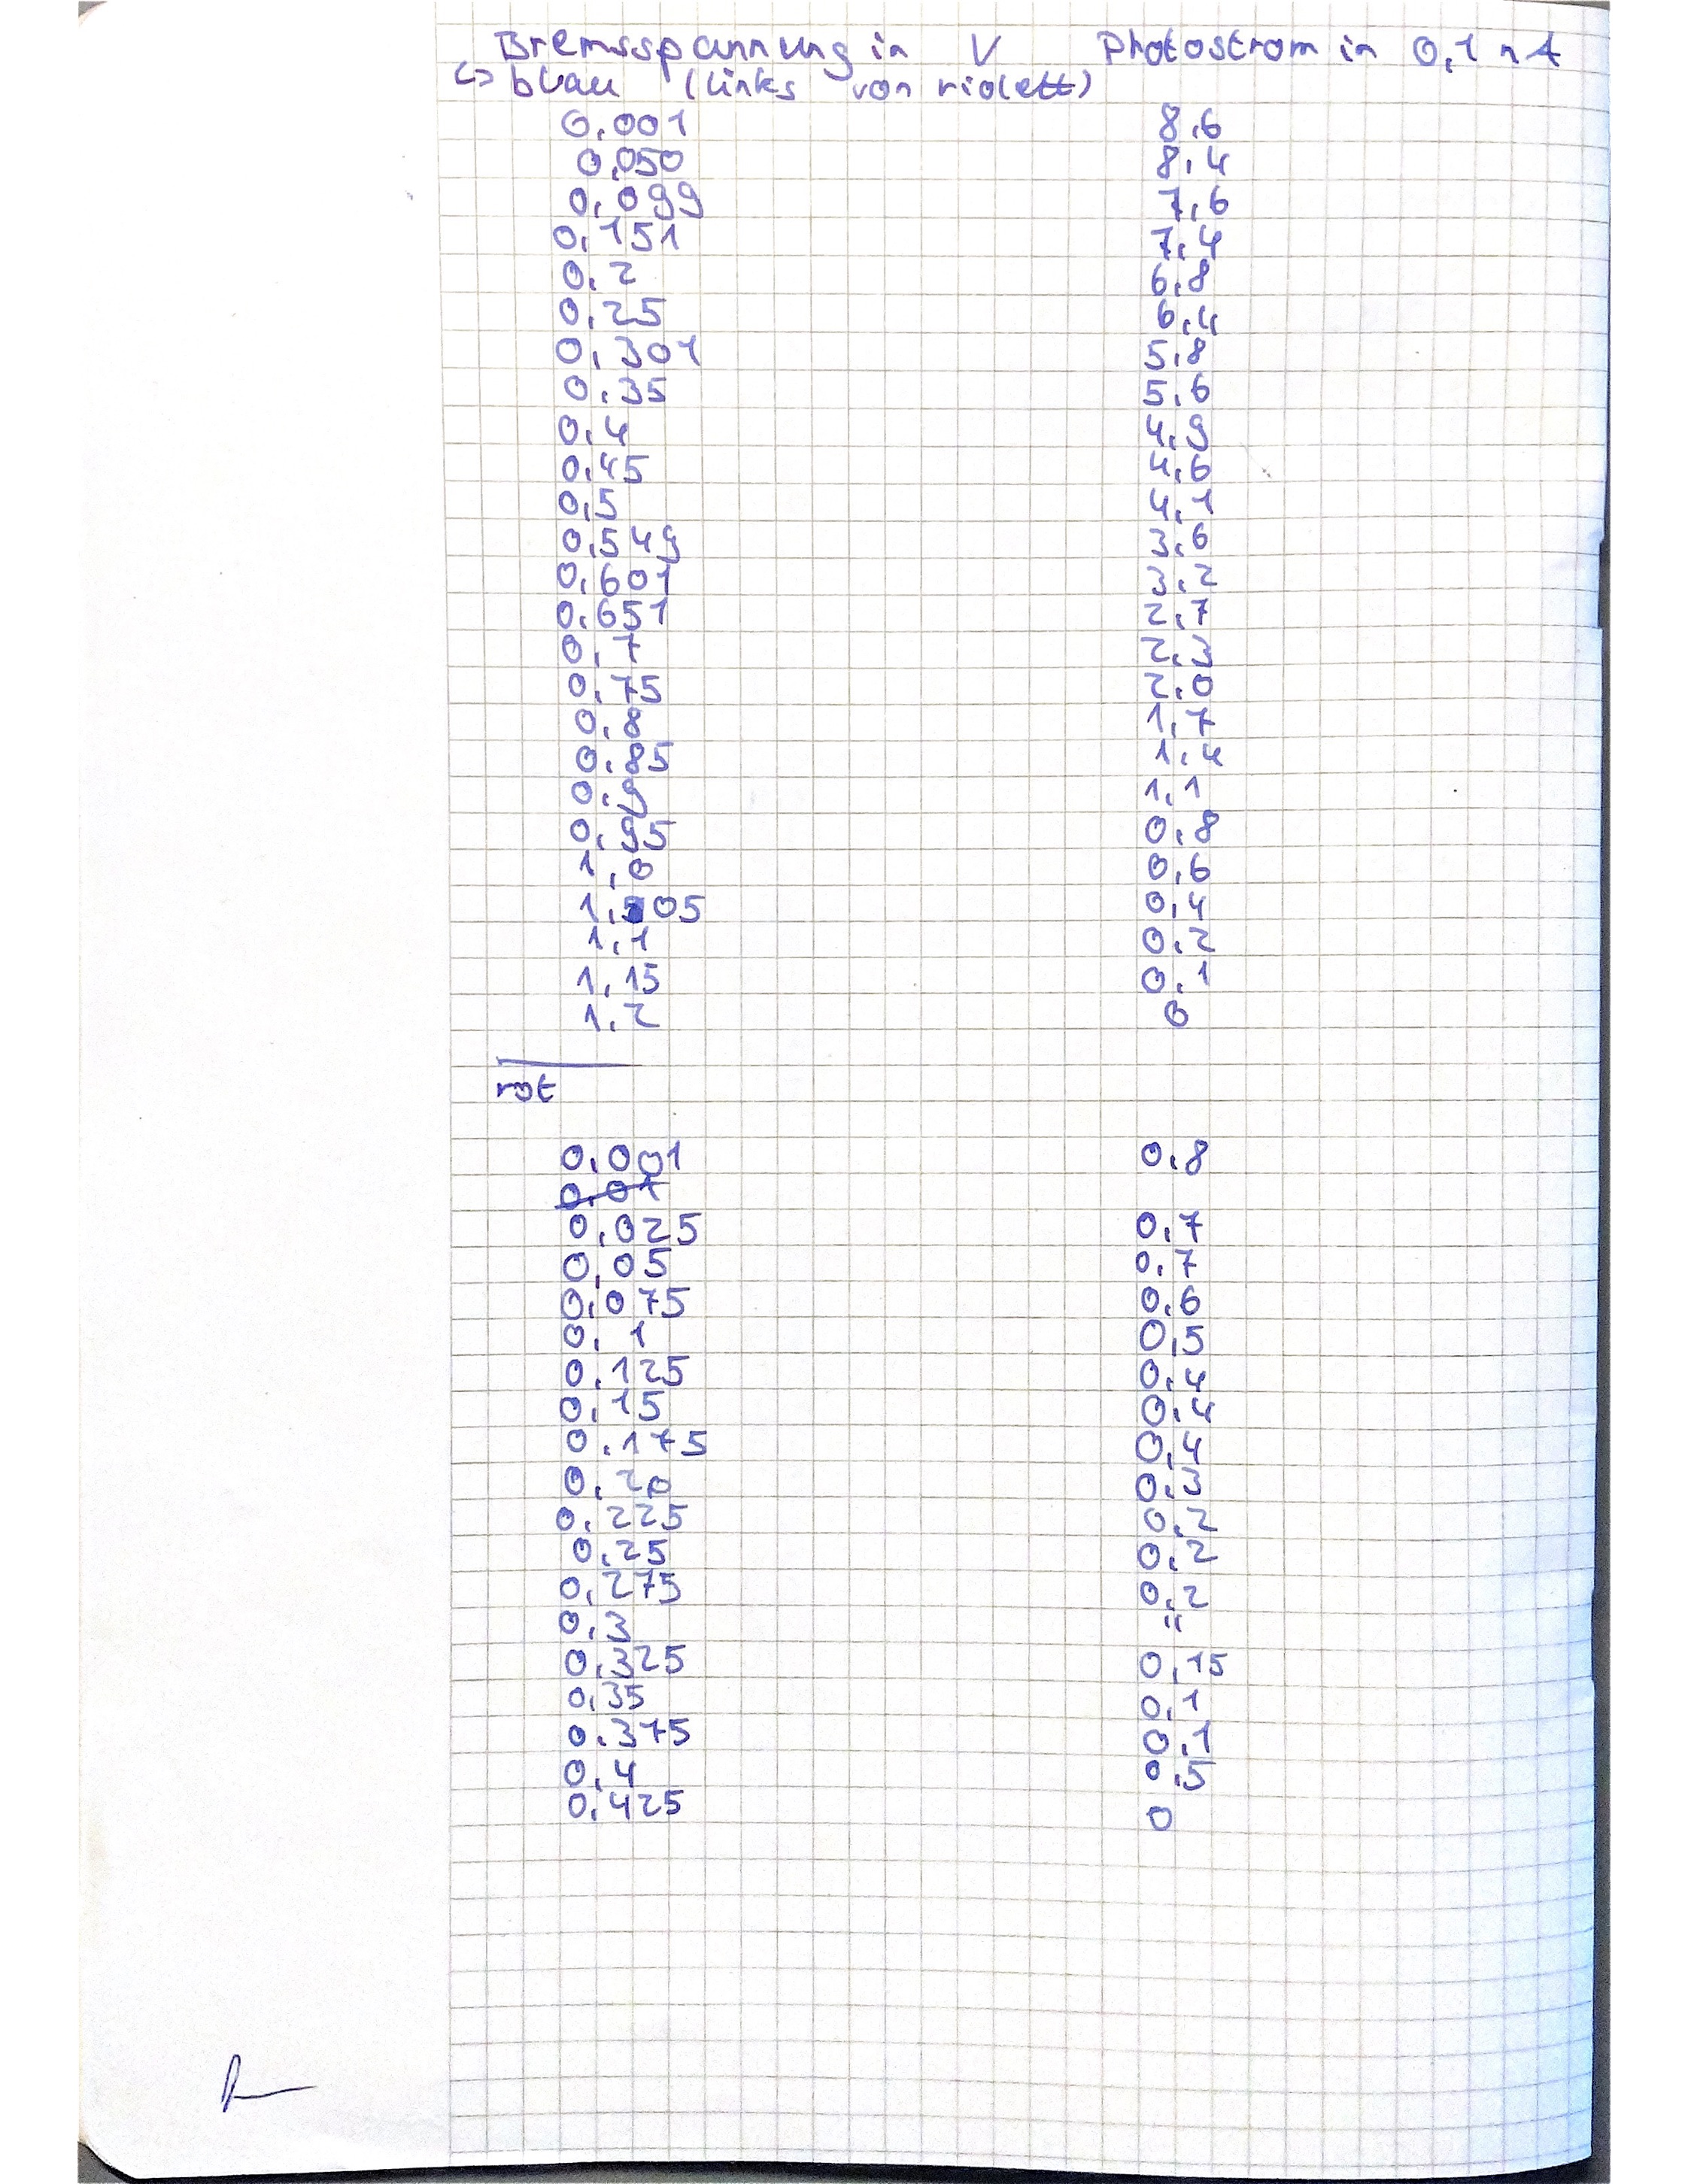 Bremsspannung in V Photostrom in 0,1 nA
↳ blau (links von violett)
0,001 8,6
0,050 8,4
0,099 7,6
0,151 7,4
0,2 6,8
0,25 6,4
0,301 5,8
0,35 5,6
0,4 4,9
0,45 4,6
0,5 4,1
0,549 3,6
0,601 3,2
0,651 2,7
0,7 2,3
0,75 2,0
0,8 1,7
0,85 1,4
0,9 1,1
0,95 0,8
1,0 0,6
1,05 0,4
1,1 0,2
1,15 0,1
1,2 0
rot
0,001 0,8
0,01
0,025 0,7
0,05 0,7
0,075 0,6
0,1 0,5
0,125 0,4
0,15 0,4
0,175 0,4
0,20 0,3
0,225 0,2
0,25 0,2
0,275 0,2
0,3 "
0,325 0,15
0,35 0,1
0,375 0,1
0,4 0,5
0,425 0